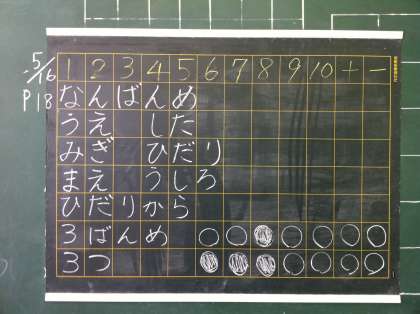 5/16
P18
1 2 3 4 5 6 7 8 9 10 + −
なんばんめ
うえ した
みぎ ひだり
まえ うしろ
ひだりから
3ばんめ ○○●○○○○○
3つ ●●●○○○○○